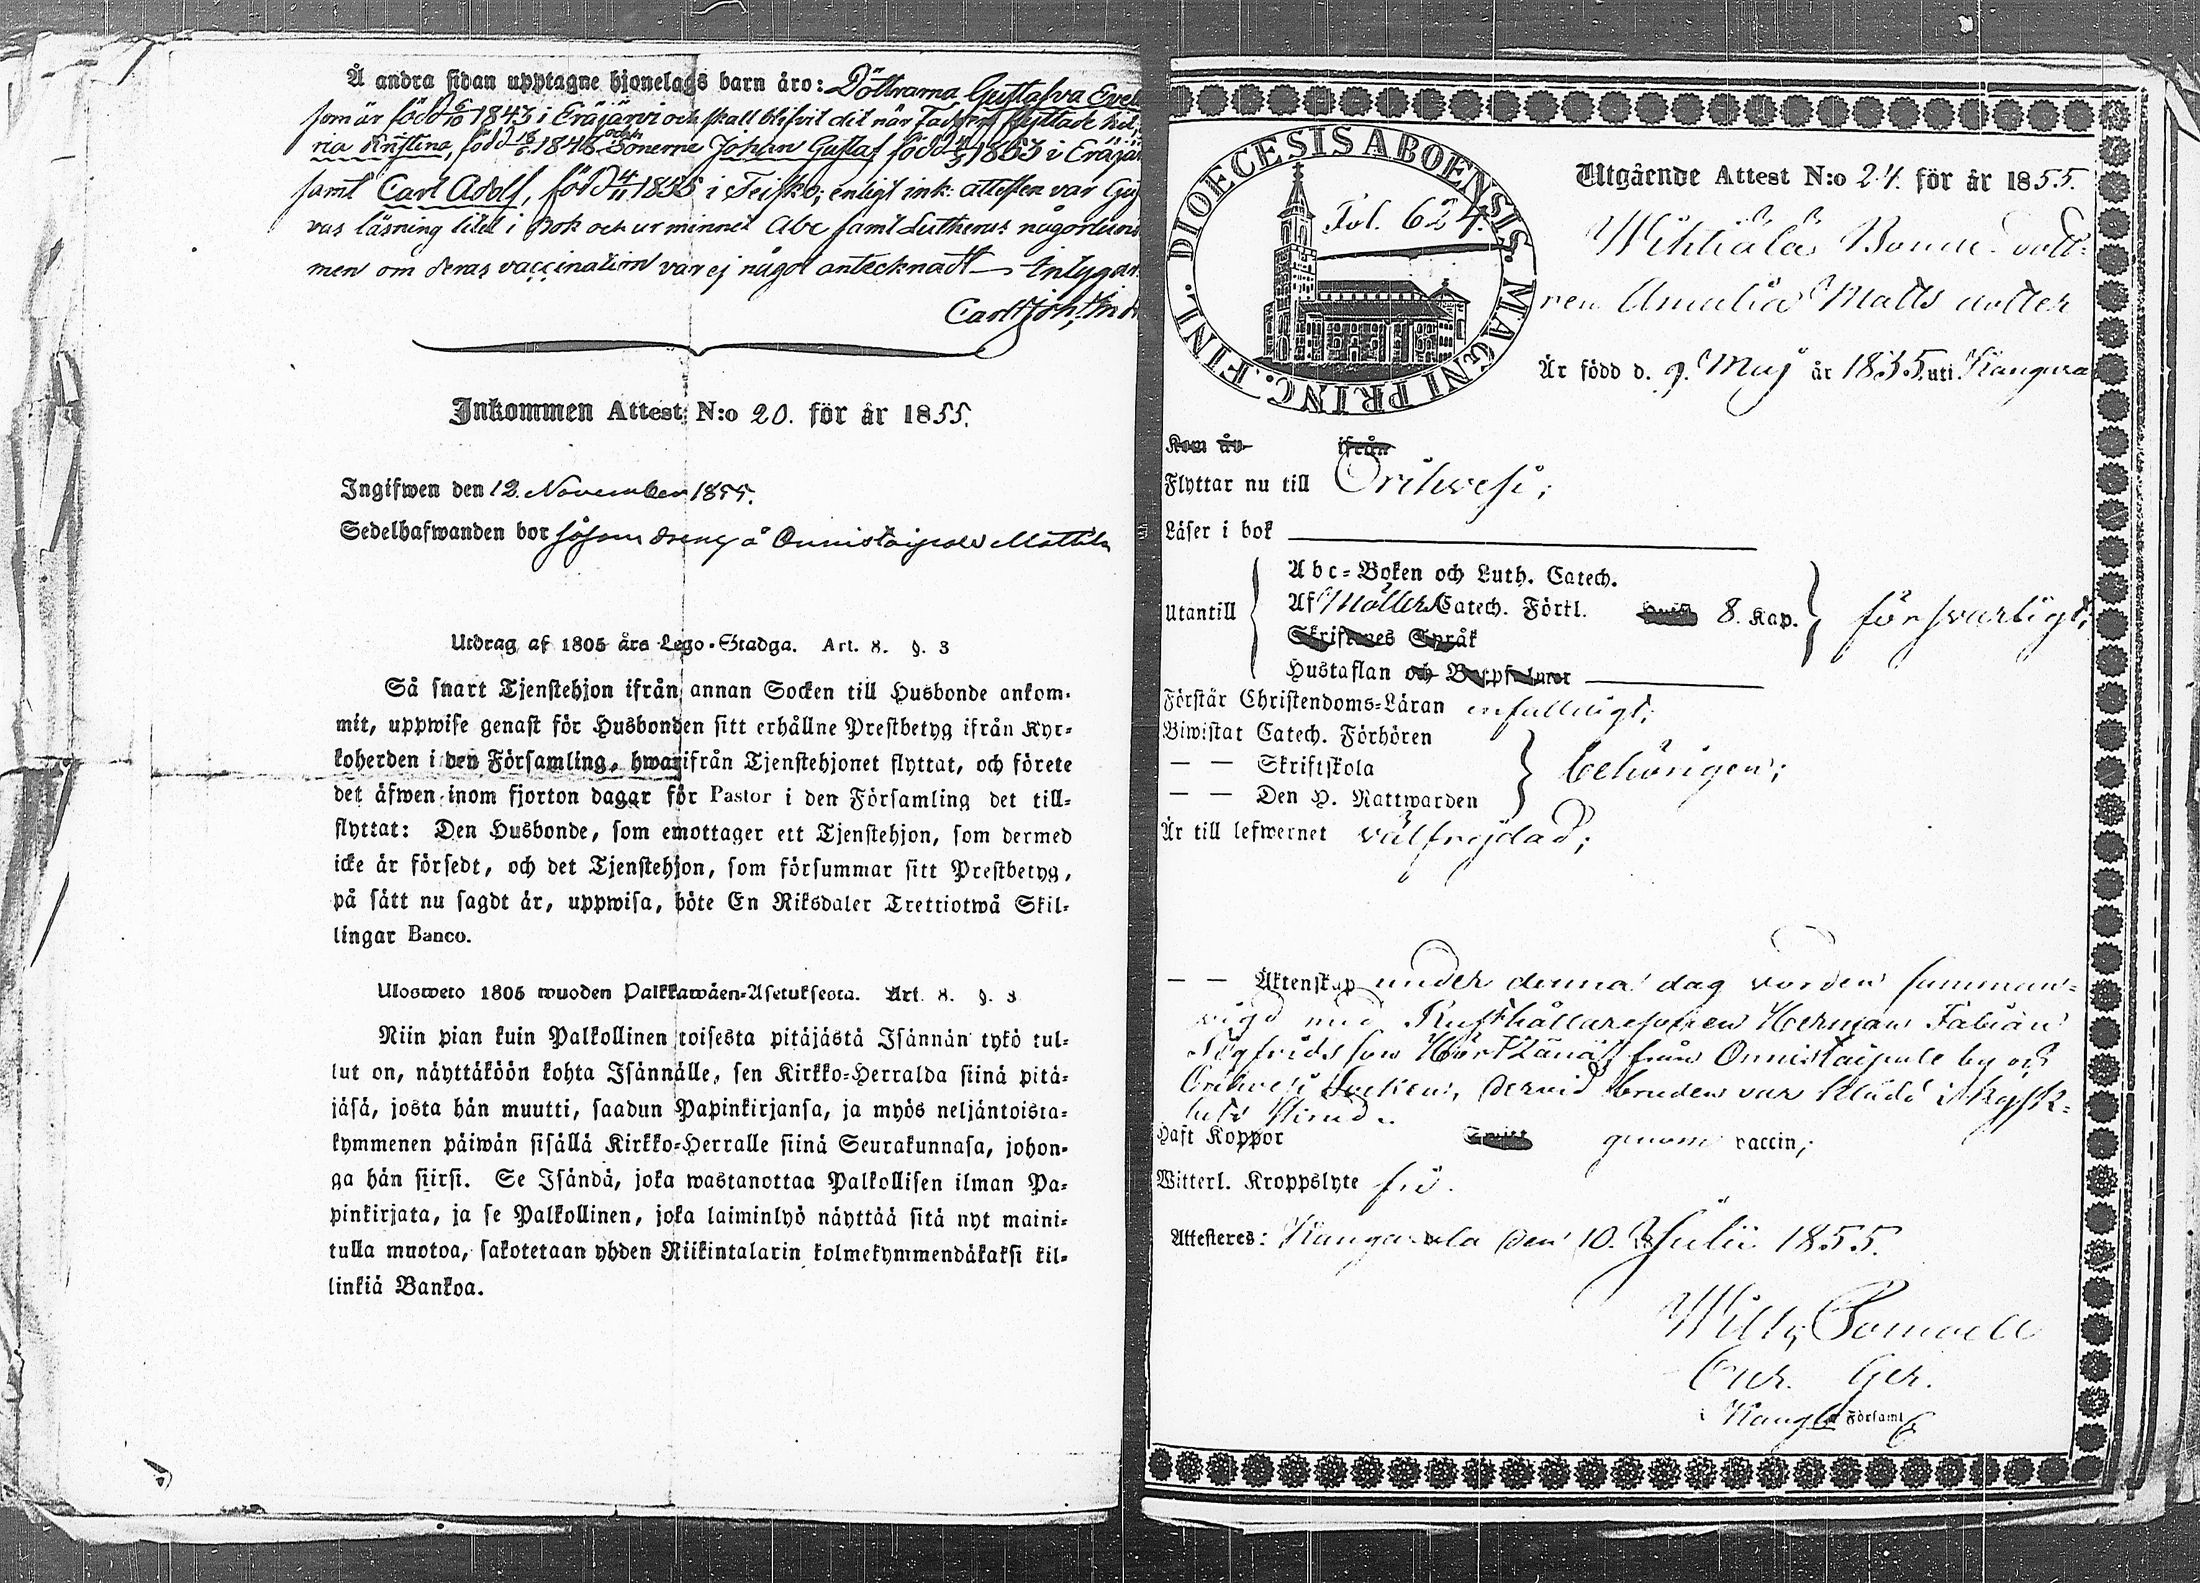 Å andra sidan upptagne hjonelags barn äro: Döttrarna Gustafva
som är född 1843 i Eräjärvi och skall blifvit
ria Kristina, född 1848 och Sönerne Johan Gustaf född 1853 i
samt Carl Adolf, född 4/11 1855 i Teisko; enligt ink. attesten var
vas läsning litet i Bok och ur minnet Abc samt Lutherus någorlunda
men om deras vaccination var ej något antecknadt
Carl Joh.
Inkommen Attest: N:o 20. för år 1855.
Ingifwen den 12. November 1855.
Sedelhafwanden bor såsom dreng å Onnistaipale Mattila
Utdrag af 1805 års Lego-Stadga. Art. 8. §. 3
Så snart Tjenstehjon ifrån annan Socken till Husbonde ankom-
mit, uppwise genast för Husbonden sitt erhållne Prestbetyg ifrån Kyr-
koherden i den Församling, hwarifrån Tjenstehjonet flyttat, och förete
det äfwen inom fjorton dagar för Pastor i den Församling det till-
flyttat: Den Husbonde, som emottager ett Tjenstehjon, som dermed
icke är försedt, och det Tjenstehjon, som försummar sitt Prestbetyg,
på sätt nu sagdt är, uppwisa, böte En Riksdaler Trettiotwå Skil-
lingar Banco.
Ulosweto 1805 wuoden Palkkawäen-Asetuksesta. Art. 8. §. 3
Niin pian kuin Palkollinen toisesta pitäjästä Isännän tykö tul-
lut on, näyttäköön kohta Isännälle, sen Kirkko-Herralda siinä pitä-
jäsä, josta hän muutti, saadun Papinkirjansa, ja myös neljäntoista-
kymmenen päiwän sisällä Kirkko-Herralle siinä Seurakunnasa, johon-
ga hän siirsi. Se Isändä, joka wastanottaa Palkollisen ilman Pa-
pinkirjata, ja se Palkollinen, joka laiminlyö näyttää sitä nyt maini-
tulla muotoa, sakotetaan yhden Riikintalarin kolmekymmendäkaksi kil-
linkiä Bankoa.
DIOECESIS ABOENSIS. MAGNI PRINC. FINL.
Fol. 624.
Utgående Attest N:o 24. för år 1855.
Wihtiälä Bonde dott-
ren Amalia Matts dotter
Är född d. 9. Maj år 1835. uti Kangasa
Kom år ifrån
Flyttar nu till Orihvesi;
Läser i bok
Utantill
Abc-Boken och Luth. Catech.
Af Möllers Catech. Förkl. 8. Kap.
Skriftenes Språk
Hustaflan och Botpsalmer
försvarligt;
Förstår Christendoms-Läran enfaldeligt;
Biwistat Catech. Förhören
— — Skriftskola
— — Den H. Nattwarden
behörigen;
Är till lefwernet välfrejdad;
— — Äktenskap under denna dag vorden samman-
vigd med Rusthållaresonen Herman Fabian
Sigfridsson från Onnistaipale by och
Orihvesi Socken, dervid bruden var klädd i
Haft Koppor genom vaccin;
Witterl. Kroppslyte fri.
Attesteres: Kangasala den 10. Julii 1855.
Församl